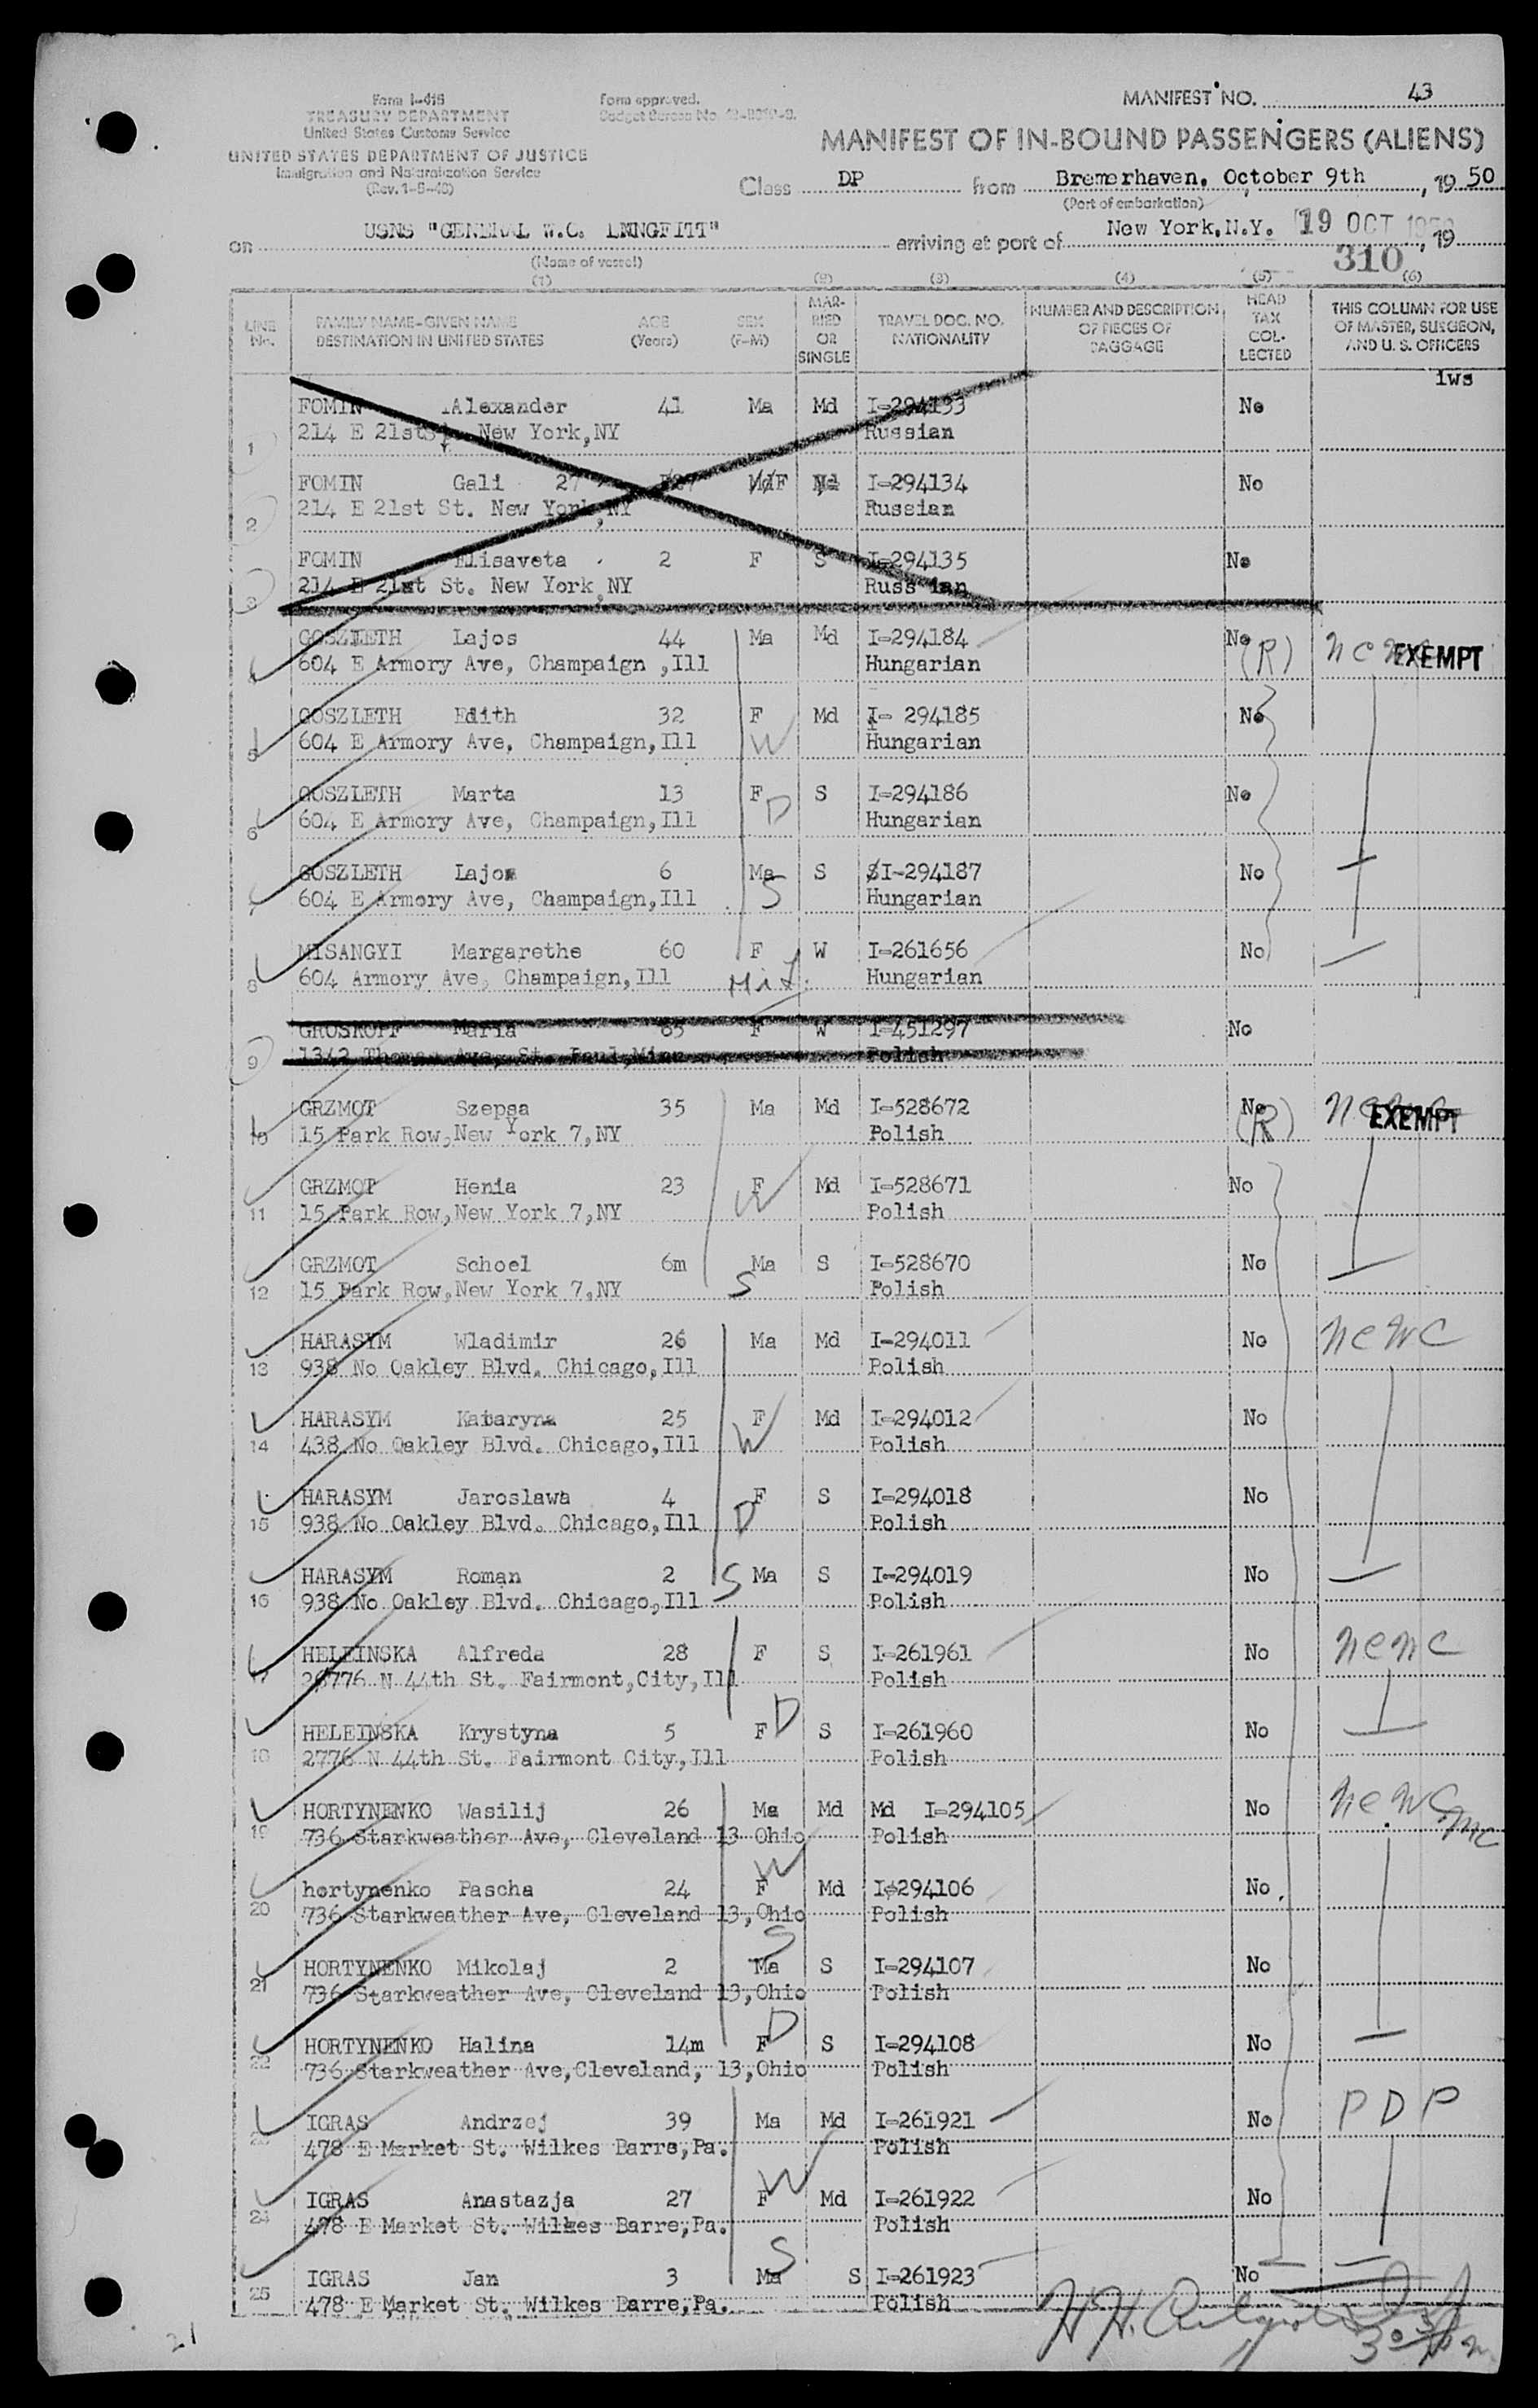 Form I-416
TREASURY DEPARTMENT
United States Customs Service
UNITED STATES DEPARTMENT OF JUSTICE
Immigration and Naturalization Service
(Rev. 1-5-48)
Form approved.
Budget Bureau No.
MANIFEST NO. 43
MANIFEST OF IN-BOUND PASSENGERS (ALIENS)
Class DP from Bremerhaven, October 9th, 19 50
(Port of embarkation)
on USNS "GENERAL W.C. LNNGFITT" arriving at port of New York, N.Y. 19 OCT 1950, 19
(Name of vessel)
310
(1) (2) (3) (4) (5) (6)
LINE No. FAMILY NAME-GIVEN NAME DESTINATION IN UNITED STATES AGE (Years) SEX (F-M) MAR-RIED OR SINGLE TRAVEL DOC. NO. NATIONALITY NUMBER AND DESCRIPTION OF PIECES OF BAGGAGE HEAD TAX COL-LECTED THIS COLUMN FOR USE OF MASTER, SURGEON, AND U. S. OFFICERS
iws
1 FOMIN Alexander 41 Ma Md I-294133 No
214 E 21st St. New York, NY Russian
2 FOMIN Gali 27 F Md I-294134 No
214 E 21st St. New York, NY Russian
3 FOMIN Elisaveta 2 F S I-294135 No
214 E 21st St. New York, NY Russian
4 GOSZLETH Lajos 44 Ma Md I-294184 No (R) ncnc EXEMPT
604 E Armory Ave, Champaign ,Ill Hungarian
5 GOSZLETH Edith 32 F W Md I- 294185 No
604 E Armory Ave, Champaign, Ill Hungarian
6 GOSZLETH Marta 13 F D S I-294186 No
604 E Armory Ave, Champaign, Ill Hungarian
7 GOSZLETH Lajos 6 Ma S S I-294187 No
604 E Armory Ave, Champaign, Ill Hungarian
8 MISANGYI Margarethe 60 F W I-261656 No
604 Armory Ave, Champaign, Ill MiL. Hungarian
9 GROSKOPF Maria 65 F W I-451297 No
1342 Thomas Ave, St. Paul, Minn Polish
10 GRZMOT Szepsa 35 Ma Md I-528672 No (R) ncnc EXEMPT
15 Park Row, New York 7, NY Polish
11 GRZMOT Henia 23 F W Md I-528671 No
15 Park Row, New York 7, NY Polish
12 GRZMOT Schoel 6m Ma S S I-528670 No
15 Park Row, New York 7, NY Polish
13 HARASYM Wladimir 26 Ma Md I-294011 No ncnc
938 No Oakley Blvd. Chicago, Ill Polish
14 HARASYM Kataryna 25 F W Md I-294012 No
438 No Oakley Blvd. Chicago, Ill Polish
15 HARASYM Jaroslawa 4 F D S I-294018 No
938 No Oakley Blvd. Chicago, Ill Polish
16 HARASYM Roman 2 S Ma S I-294019 No
938 No Oakley Blvd. Chicago, Ill Polish
17 HELEINSKA Alfreda 28 F S I-261961 No ncnc
2776 N 44th St. Fairmont, City, Ill Polish
18 HELEINSKA Krystyna 5 F D S I-261960 No
2776 N 44th St. Fairmont City, Ill Polish
19 HORTYNENKO Wasilij 26 Ma Md Md I-294105 No ncnc
736 Starkweather Ave, Cleveland 13 Ohio Polish
20 hortynenko Pascha 24 F W Md I-294106 No
736 Starkweather Ave, Cleveland 13, Ohio Polish
21 HORTYNENKO Mikolaj 2 Ma S S I-294107 No
736 Starkweather Ave, Cleveland 13, Ohio Polish
22 HORTYNENKO Halina 14m F D S I-294108 No
736 Starkweather Ave, Cleveland, 13, Ohio Polish
23 IGRAS Andrzej 39 Ma Md I-261921 No PDP
478 E Market St. Wilkes Barre, Pa. Polish
24 IGRAS Anastazja 27 F W Md I-261922 No
478 E Market St. Wilkes Barre, Pa. Polish
25 IGRAS Jan 3 Ma S S I-261923 No
478 E Market St. Wilkes Barre, Pa. Polish
21